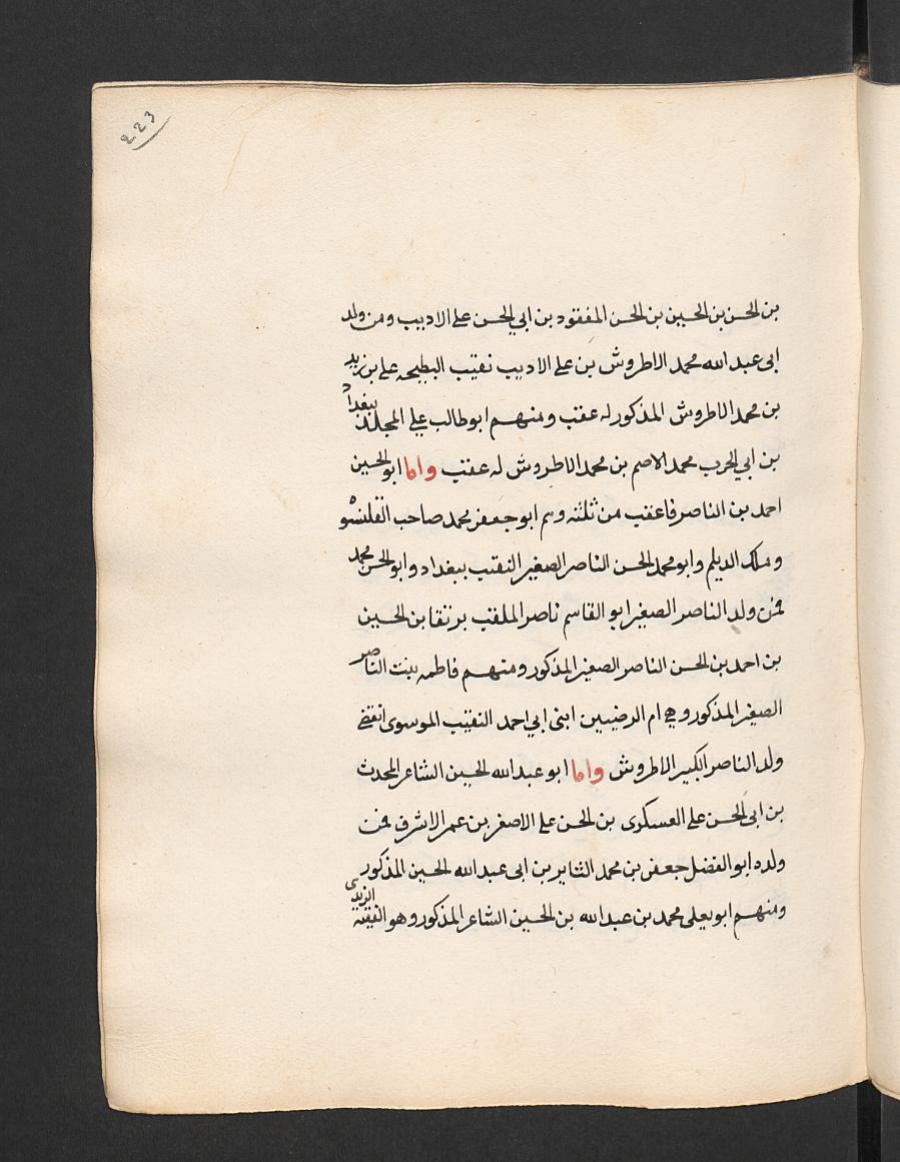 223
بن الحسن بن الحسين بن الحسن المفقود بن ابي الحسن على الاديب ومن ولد
ابى عبد الله محمد الاطروش بن على الاديب نقيب البطيحه على بن زيد
بن محمد الاطروش المذكور له عقب ومنهم ابو طالب على المجلد ببغداد
بن ابي الحرب محمد الاصم بن محمد الاطروش له عقب واما ابو الحسين
احمد بن الناصر فاعقب من ثلثة وهم ابو جعفر محمد صاحب القلنسوة
وملك الديلم وابو محمد الحسن الناصر الصغير النقيب ببغداد وابو الحسن محمد
فمن ولد الناصر الصغير ابو القاسم ناصر الملقب برتقا بن الحسين
بن احمد بن الحسن الناصر الصغير المذكور ومنهم فاطمه بنت الناصر
الصغير المذكور وهى ام الرضيين ابنى ابي احمد النقيب الموسوى انقضى
ولد الناصر الكبير الاطروش واما ابو عبد الله الحسين الشاعر المحدث
بن ابى الحسن على العسكرى بن الحسن على الاصغر بن عمر الاشرف فمن
ولده ابو الفضل جعفر بن محمد الثاير بن ابى عبد الله الحسين المذكور
ومنهم ابو يعلى محمد بن عبد الله بن الحسين الشاعر المذكور وهو الفقيه الزيدى